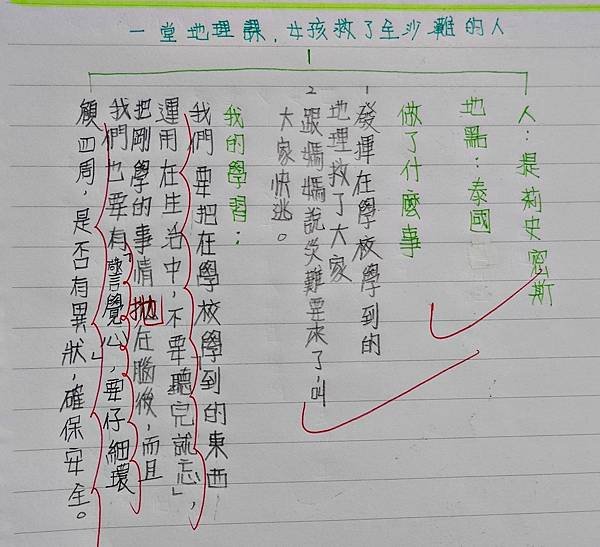 一堂地理課，女孩救了全沙灘的人
人：提莉史密斯
地點：泰國
做了什麼事
1 發揮在學校學到的
地理救了大家
2 跟媽媽說災難要來了，叫
大家快逃。
我的學習：
我們要把在學校學到的東西
運用在生活中，不要「聽完就忘」，
把剛學的事情拋在腦後，而且
我們也要有「警覺心」，要仔細環
顧四周，是否有異狀，確保安全。